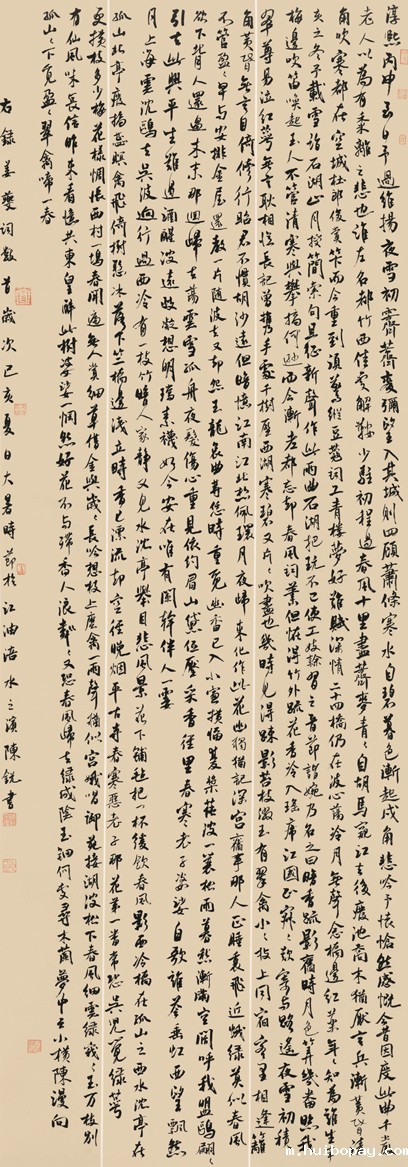 淳熙丙申至日予過維揚夜雪初霽薺麥彌望入其城則四顧蕭條寒水自碧暮色漸起戍角悲吟予懷愴然感慨今昔因度此曲千岩
老人以為有黍離之悲也淮左名都竹西佳處解鞍少駐初程過春風十里盡薺麥青々自胡馬窺江去後廢池喬木猶厭言兵漸黃昏清
角吹寒都在空城杜郎俊賞算而今重到須驚縱豆蔻詞工青樓夢好難賦深情二十四橋仍在波心蕩冷月無聲念橋邊紅藥年々知為誰生辛
亥之冬予載雪詣石湖止月授簡索句且徵新聲作此兩曲石湖把玩不已使工妓隸習之音節諧婉乃名之曰暗香疏影舊時月色算幾番照我
梅邊吹笛喚起玉人不管清寒與攀摘何遜而今漸老都忘卻春風詞筆但怪得竹外疏花香冷入瑤席江國正寂々歎寄與路遙夜雪初積
翠尊易泣紅萼無言耿相憶長記曾攜手處千樹壓西湖寒碧又片々吹盡也幾時見得疏影苔枝綴玉有翠禽小々枝上同宿客里相逢籬
角黃昏無言自倚修竹昭君不慣胡沙遠但暗憶江南江北想佩環月夜歸來化作此花幽獨猶記深宮舊事那人正睡裏飛近蛾綠莫似春風
不管盈々早與安排金屋還教一片隨波去又卻怨玉龍哀曲等恁時重覓幽香已入小窗橫幅雙槳蓴波一蓑松雨暮愁漸滿空闊呼我盟鷗翩々
欲下背人還過木末那回歸去蕩雲雪孤舟夜發傷心重見依約眉山黛痕低壓采香徑里春寒老子婆娑自歌誰答垂虹西望飄然
引去此興平生難遏酒醒波遠政凝想明璫素襪如今安在唯有闌干伴人一霎
月上海雲沈鷗去吳波迥行過西泠有一枝竹暗人家靜又見水沈亭舉目悲風景花下鋪氈把一杯緩飲春風影西泠橋在孤山之西水沈亭在
孤山北亭廢摘蕊暝禽飛倚樹懸冰落下竺橋邊淺立時香已漂流卻空徑晚烟平古寺春寒惡老子尋花第一番常恐吳兒覺綠萼
更橫枝多少梅花樣惆悵西村一塢春開遍無人賞細草借金輿歲々長吟想枝上么禽一兩聲猶似宮娥唱御苑接湖波松下春風細雲綠峨々玉萬枝別
有仙風味長信昨來看憶共東皇醉此樹婆娑一惘然好花不與殢香人浪粼々又恐春風歸去綠成陰玉鈿何處尋木蘭夢中雲小橫陳漫向
孤山山下覓盈々翠禽啼一春
右錄姜夔詞數首歲次己亥夏日大暑時節於江油涪水之濱陳銳書
m.huibopay.com